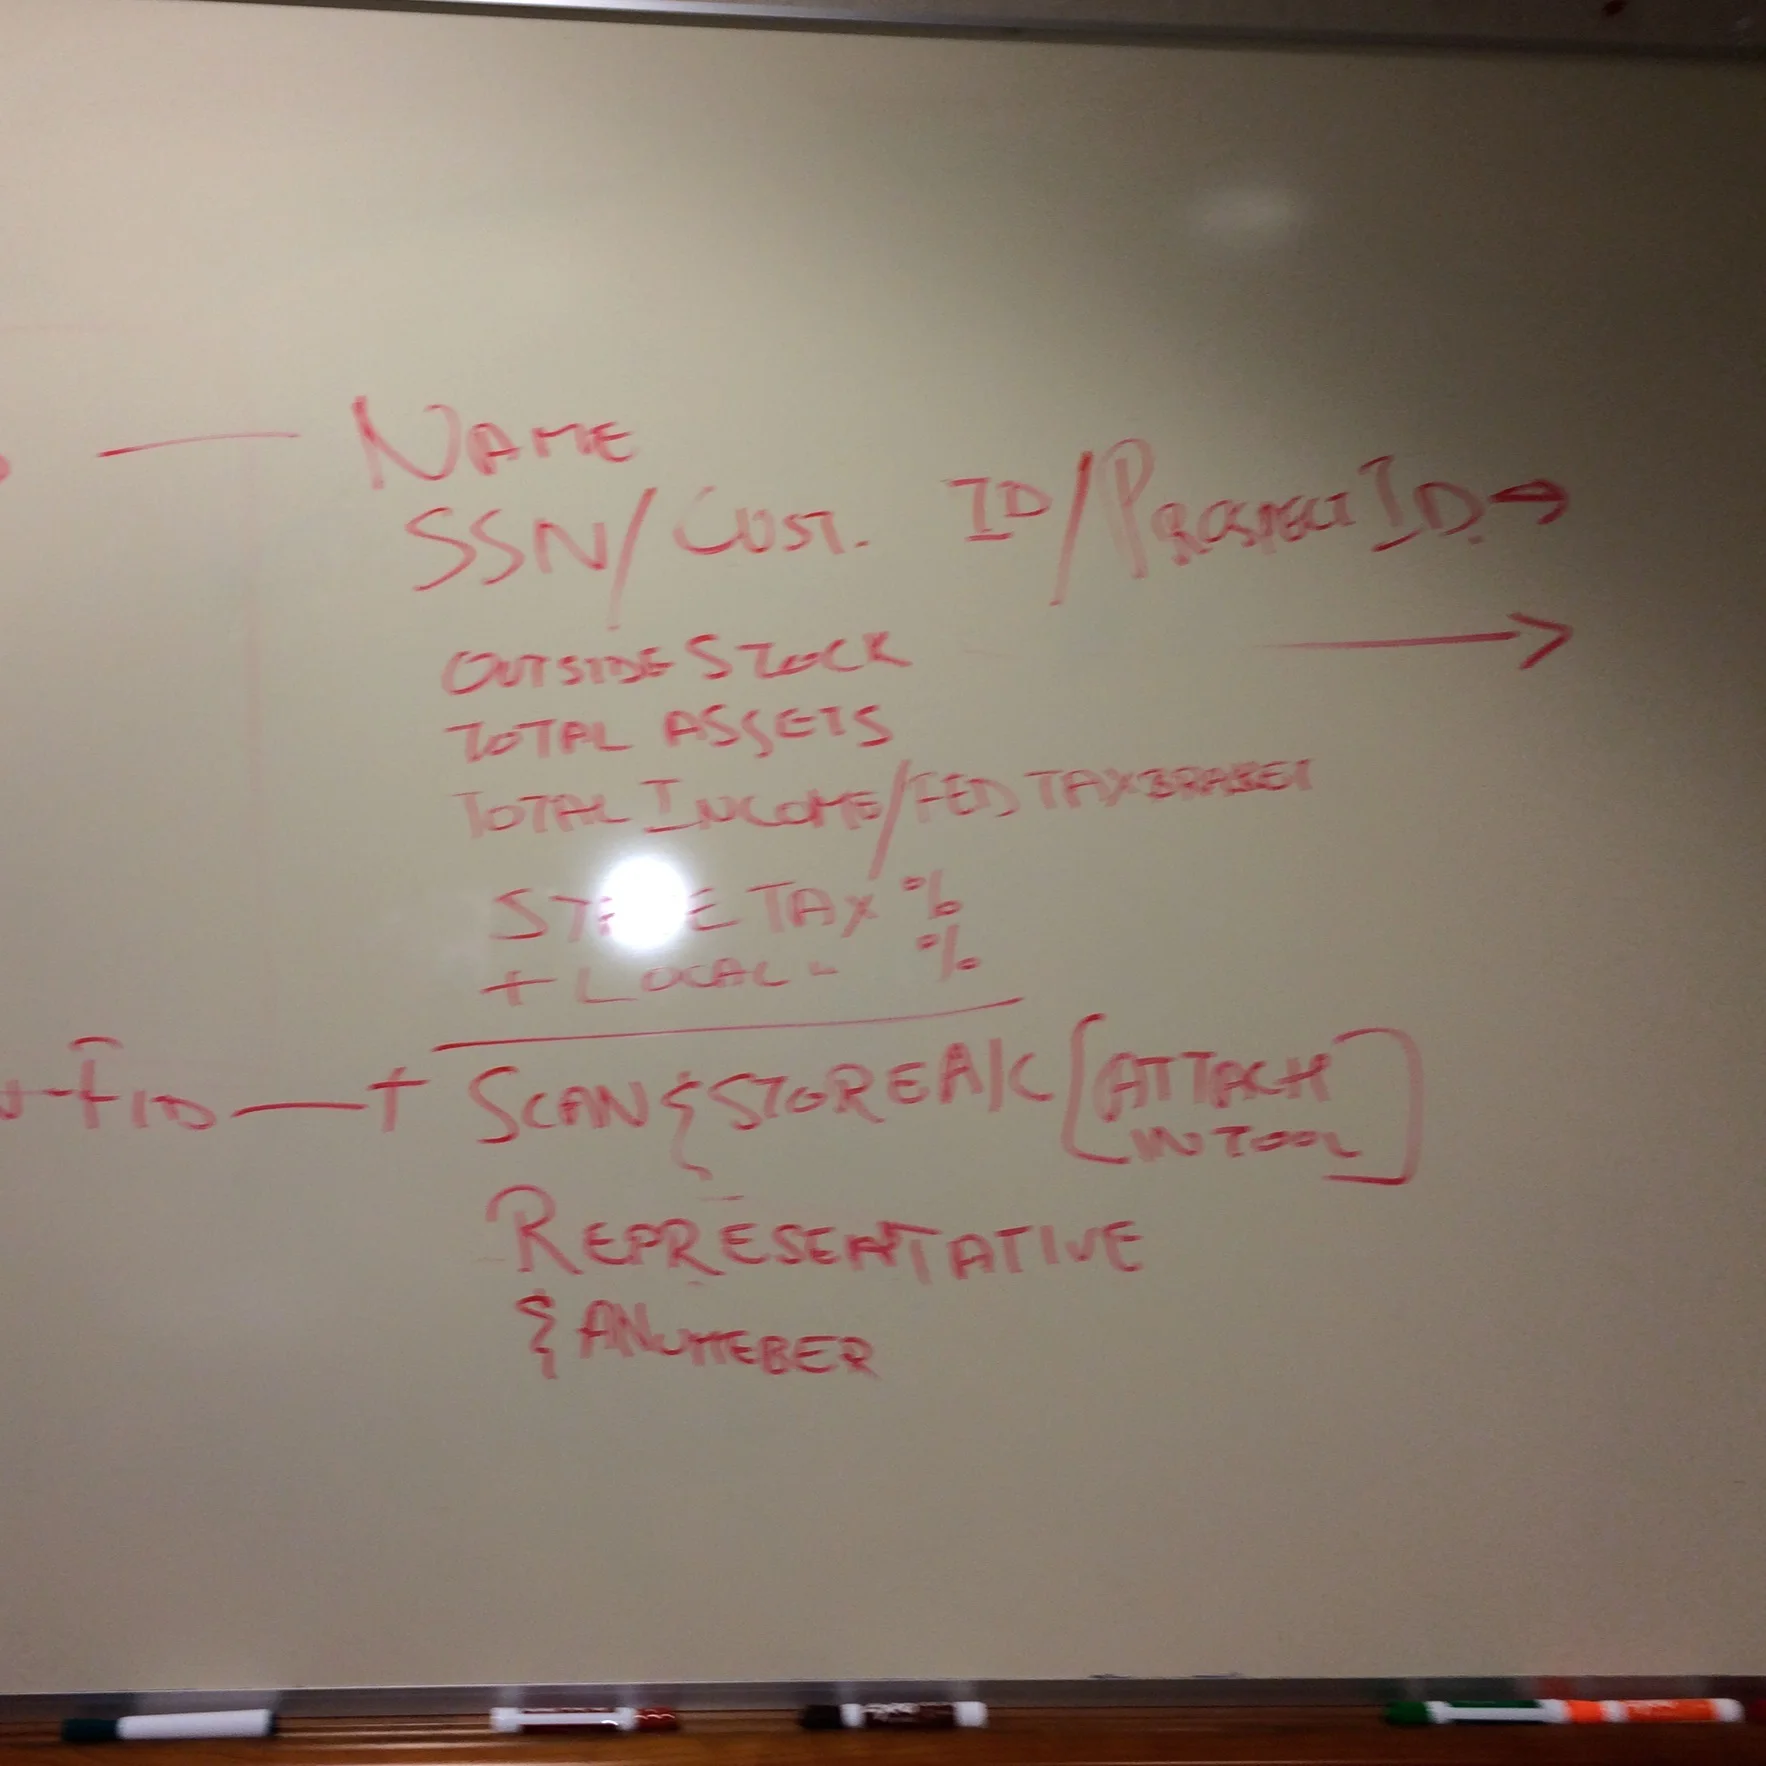 NAME
SSN/CUST. ID/PROSPECT ID.
OUTSIDE STOCK
TOTAL ASSETS
TOTAL INCOME/FED TAX BRAKET
STATE TAX %
+ LOCAL - %
FID — + SCAN & STORE A/C [ATTACH
IN TOOL]
REPRESENTATIVE
& ANUMEBER